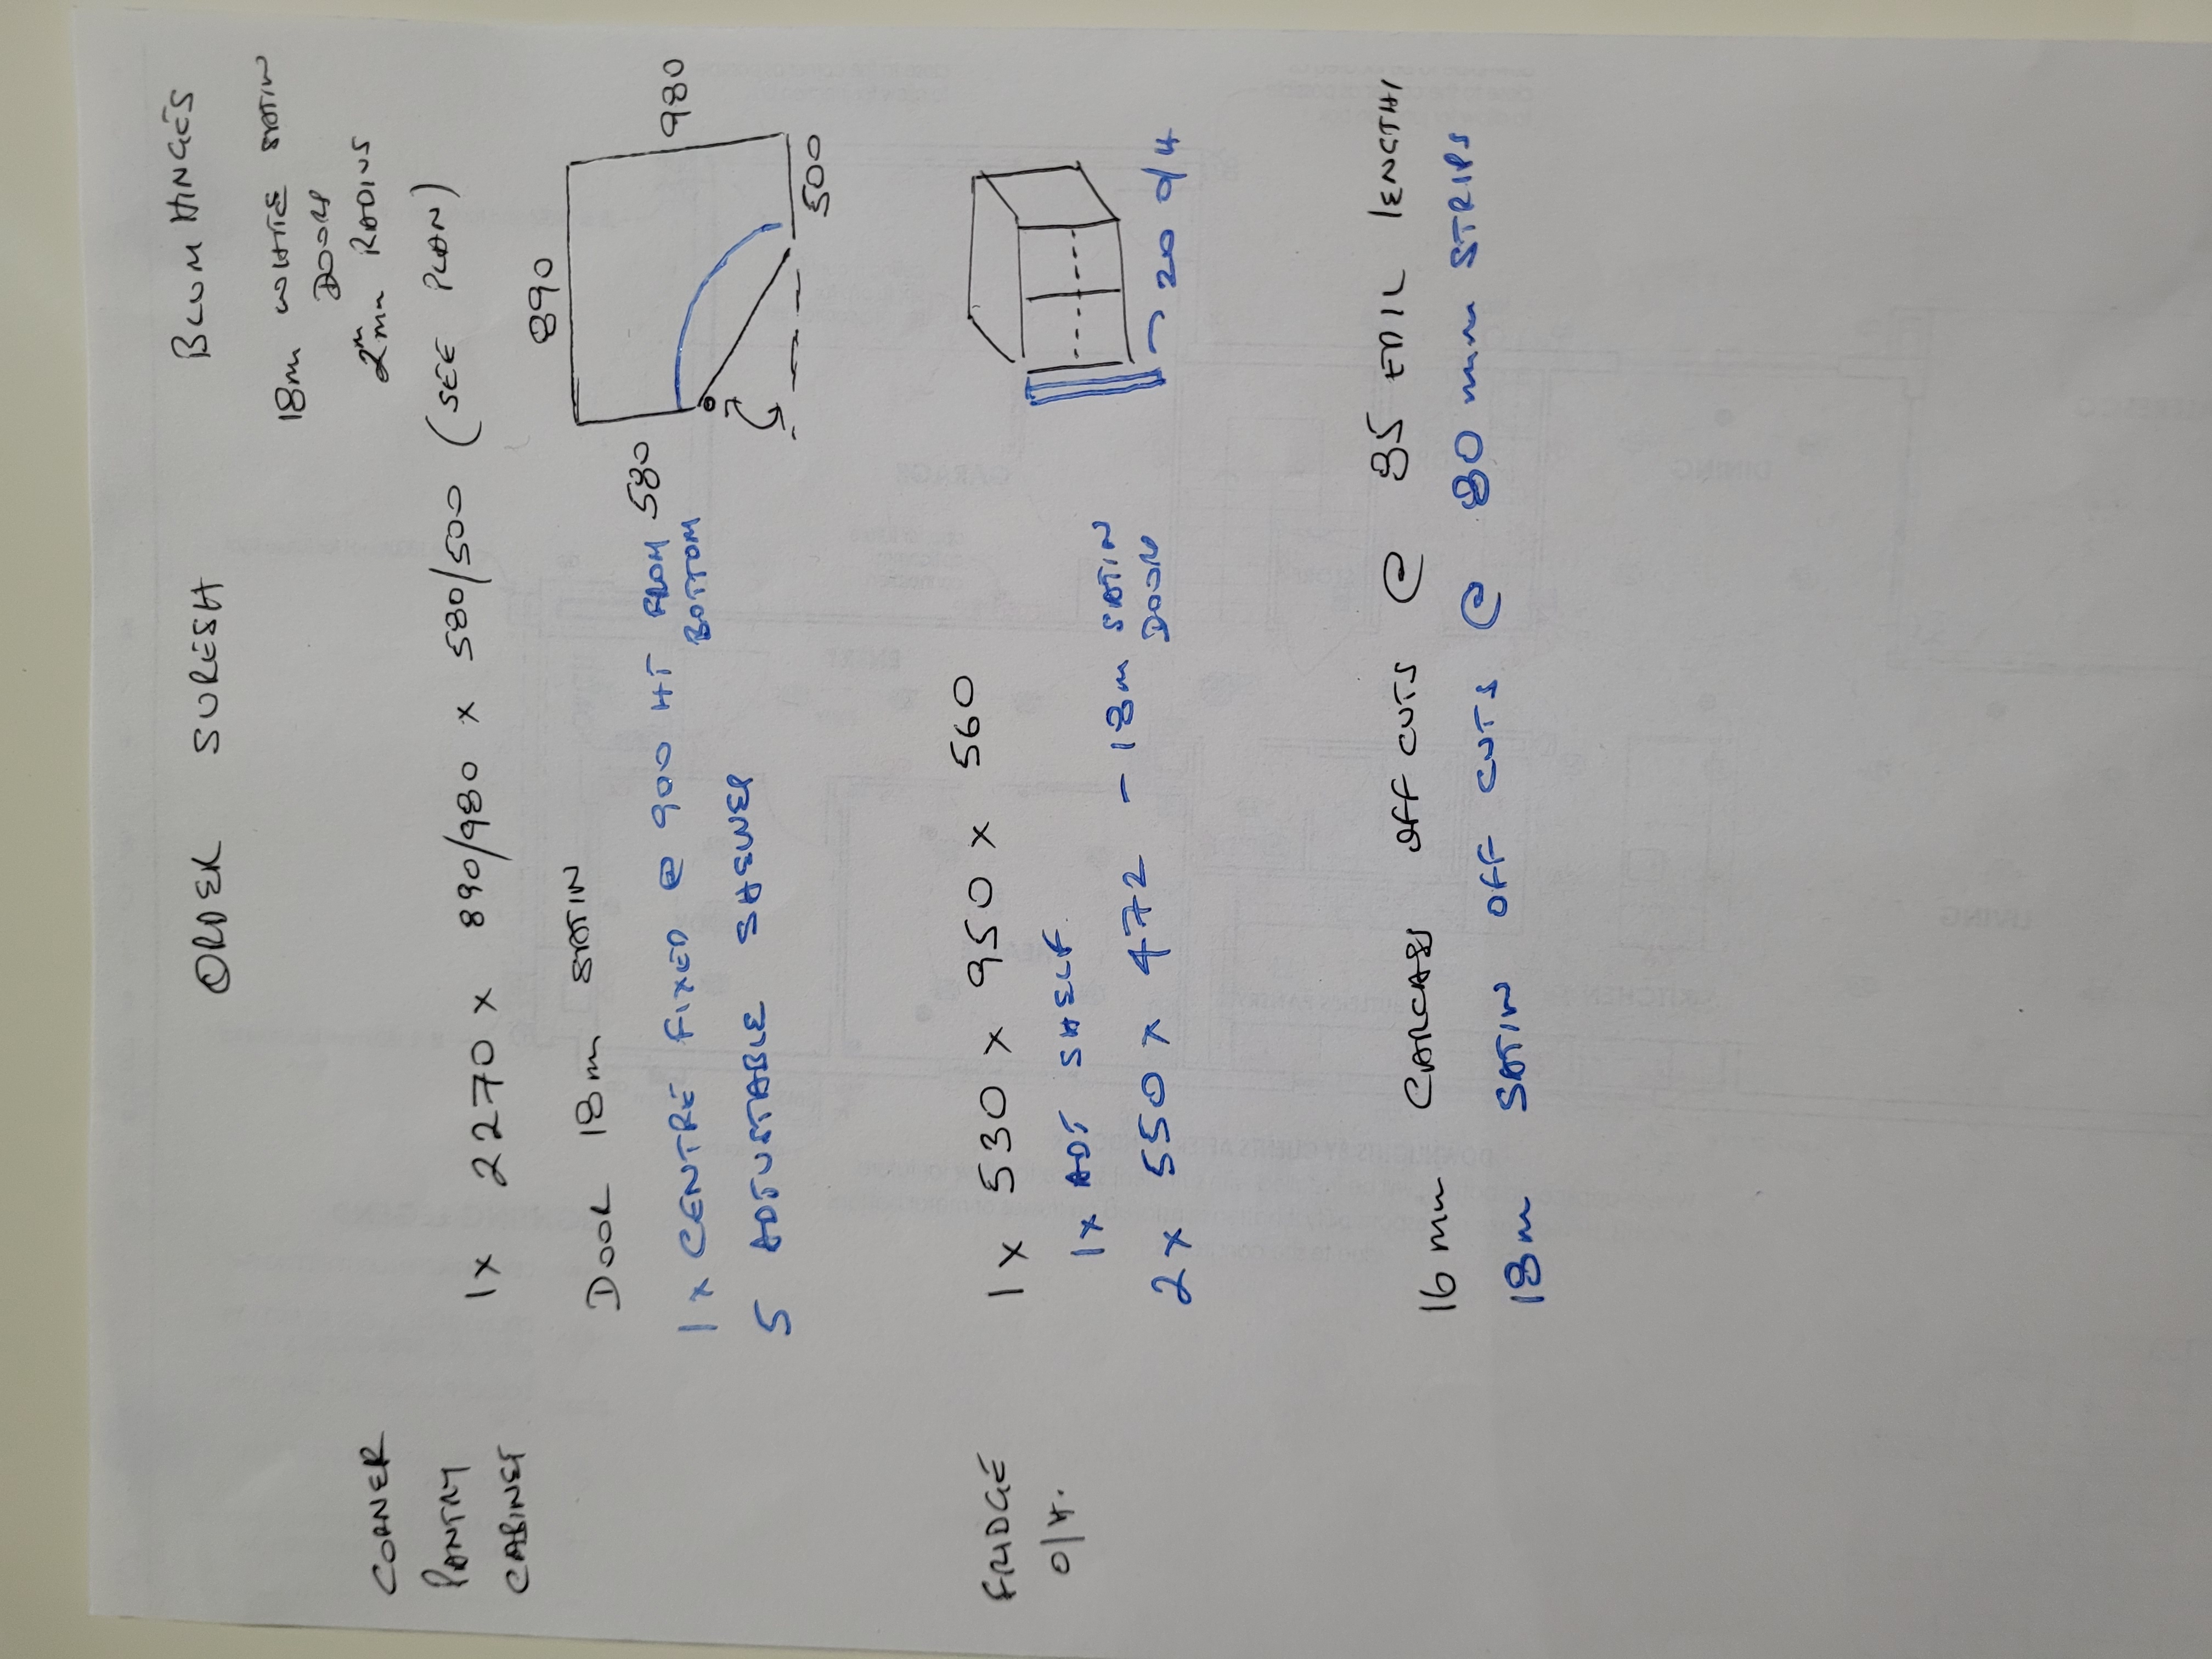 ORDER SURESH
BLUM HINGES
18m WHITE SATIN
DOOR
2mm RADIUS
CORNER
PANTRY
CABINET
1x 2270 x 890/980 x 580/500 (SEE PLAN)
DOOR 18mm SATIN
1x CENTRE FIXED @ 900 HT FROM
BOTTOM
5 ADJUSTABLE SHELVES
890
980
580
500
FRIDGE
O/H.
1 x 530 x 950 x 560
1x ADJ SHELF
2 x 550 x 472 - 18m SATIN
DOOR
20 O/H
16 mm CARCASS OFF CUTS @ 85 FULL LENGTH
18m SATIN OFF CUTS @ 80 mm STRIPS
GARAGE
DINING
LIVING
KITCHEN